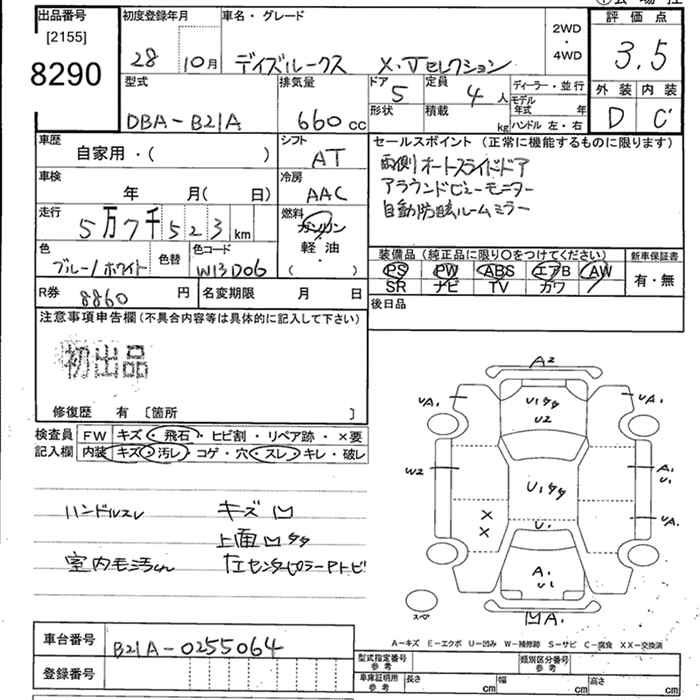 出品番号
[2155]
8290
初度登録年月
28 10月
車名・グレード
デイズルークス X・Vセレクション
2WD
・
4WD
評価点
3.5
外装 内装
D C
型式
DBA-B21A
排気量
660cc
ドア
5
定員
4人
形状
積載
kg
ディーラー・並行
モデル
年式
年
ハンドル 左・右
車歴
自家用・( )
シフト
AT
車検
年 月( 日)
冷房
AAC
走行
5万7千523km
燃料
ガソリン
軽・油
( )
色
ブルー/ホワイト
色替
色コード
W13D06
R券
8860円
名変期限 月 日
セールスポイント (正常に機能するものに限ります)
両側オートスライドドア
アラウンドビューモニター
自動防眩ルームミラー
装備品 (純正品に限り○をつけてください)
PS PW ABS エアB AW
SR ナビ TV カワ
新車保証書
有・無
後日品
注意事項申告欄(不具合内容等は具体的に記入して下さい)
初出品
修復歴 有 〔箇所 〕
検査員
記入欄
FW キズ・飛石・ヒビ割・リペア跡・×要
内装 キズ・汚レ・コゲ・穴・スレ・キレ・破レ
ハンドルスレ キズ凹
上面凹タタ
室内モニ汚れ 左センタピラーアトビ
A2
UA1 U1タタ UA1
U2
W2 U1タタ A1
U1
X
X U1 UA1
A1
U1
スペア
凹A1
A-キズ E-エクボ U-凹み W-補修跡 S-サビ C-腐食 XX-交換済
車台番号
B21A-0255064
登録番号
型式指定番号
参考
類別区分番号
参考
車庫証明用
参考
長さ cm 幅 cm 高さ cm